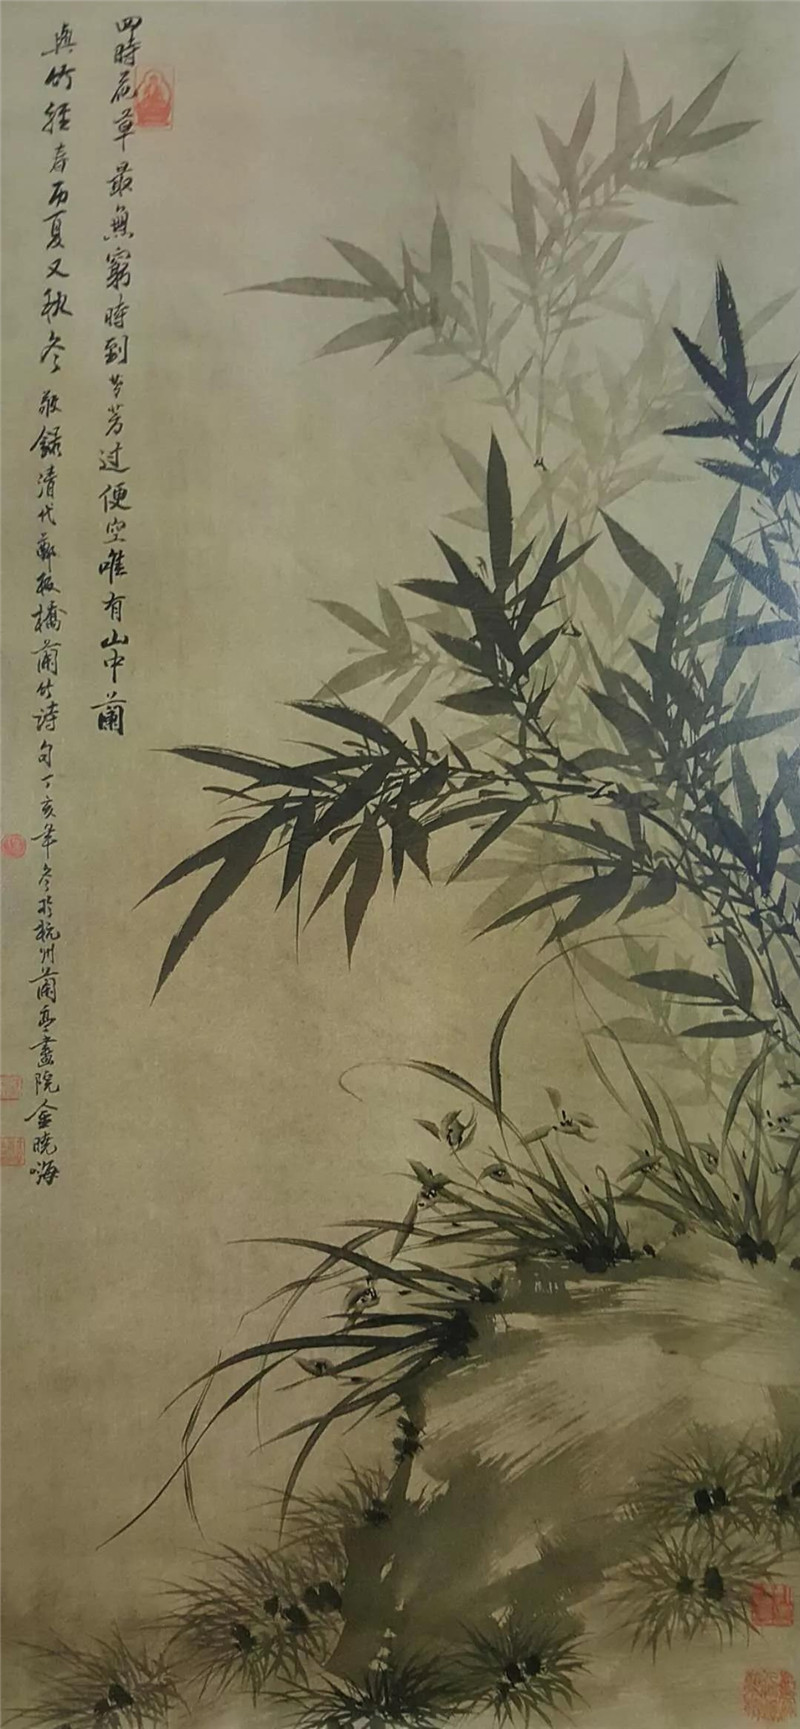 四時花草最無窮時到芬芳过便空唯有山中蘭
與竹經春历夏又秋冬 敬録清代鄭板橋蘭竹詩句丁亥年冬於杭州蘭亭畫院金曉海